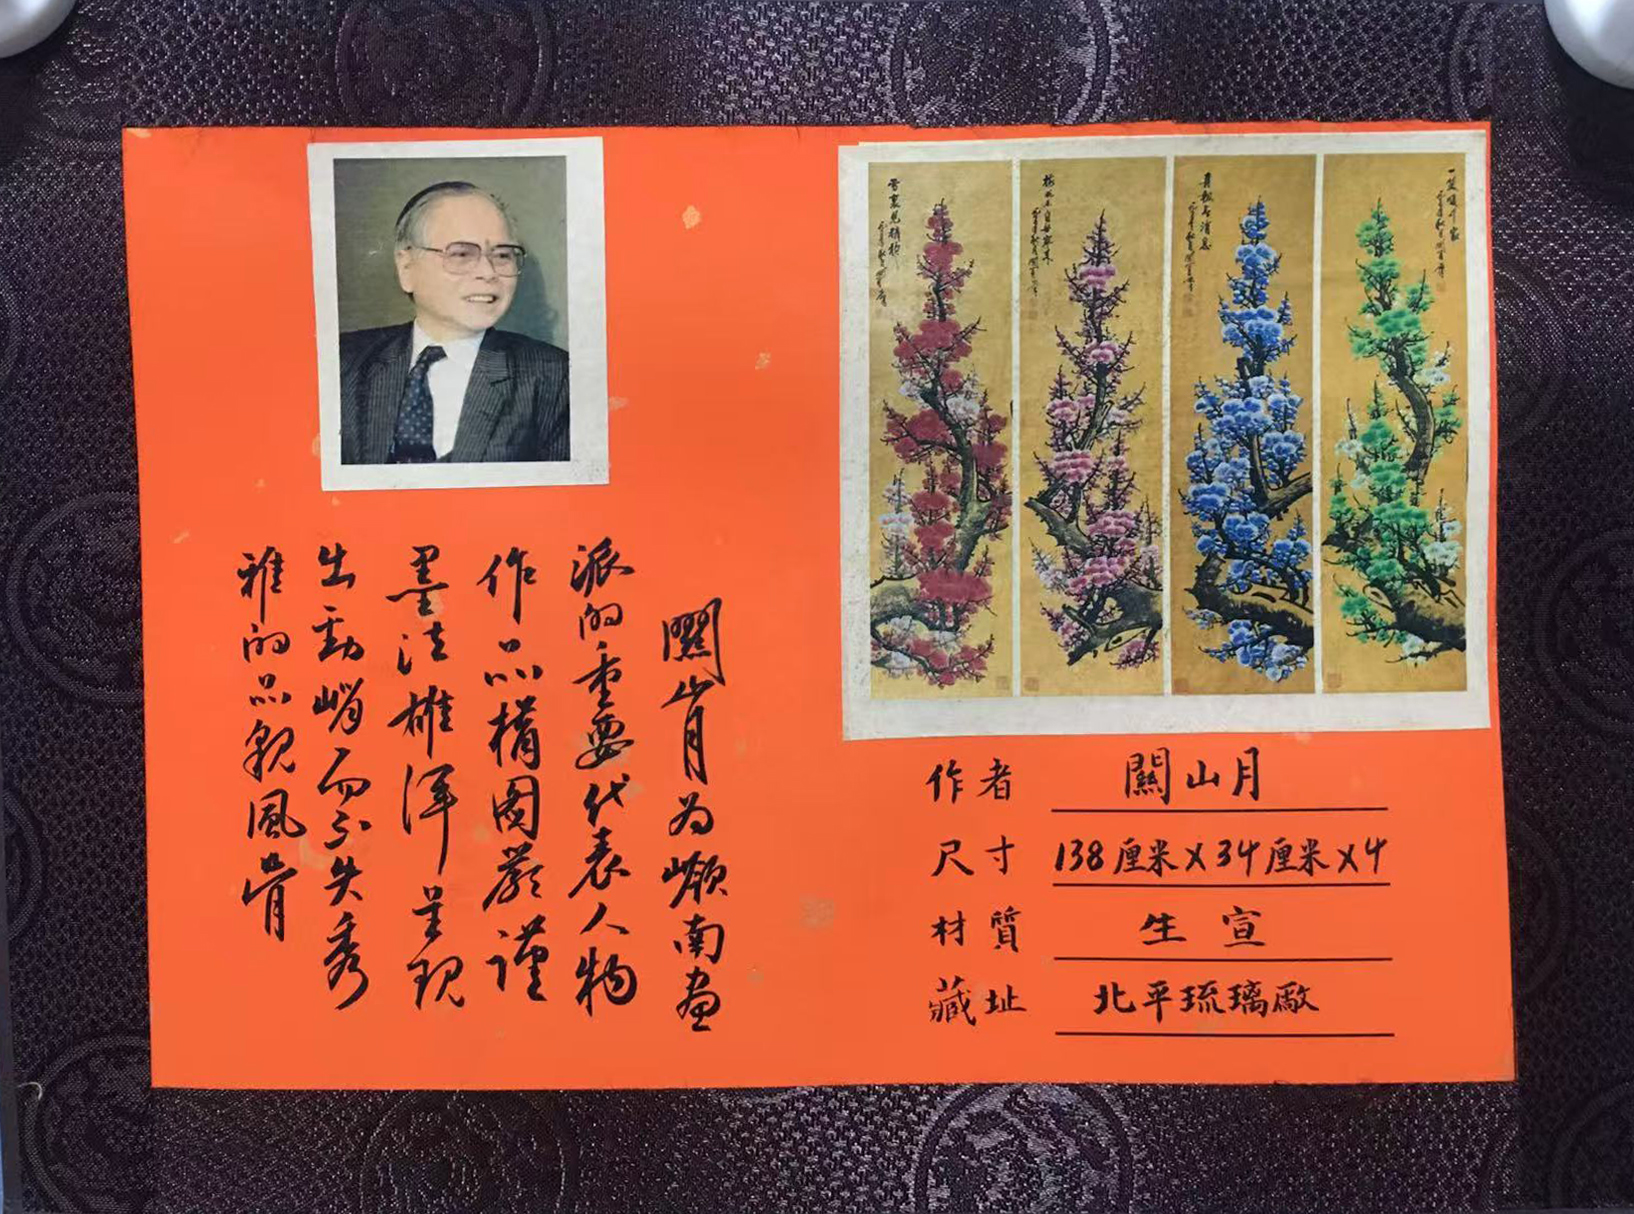 關山月为嶺南画
派的重要代表人物
作品構图嚴謹
墨法雄渾呈現
出勁峭而不失秀
雅的品貌風骨
作者 關山月
尺寸 138厘米X34厘米X4
材質 生宣
藏址 北平琉璃廠